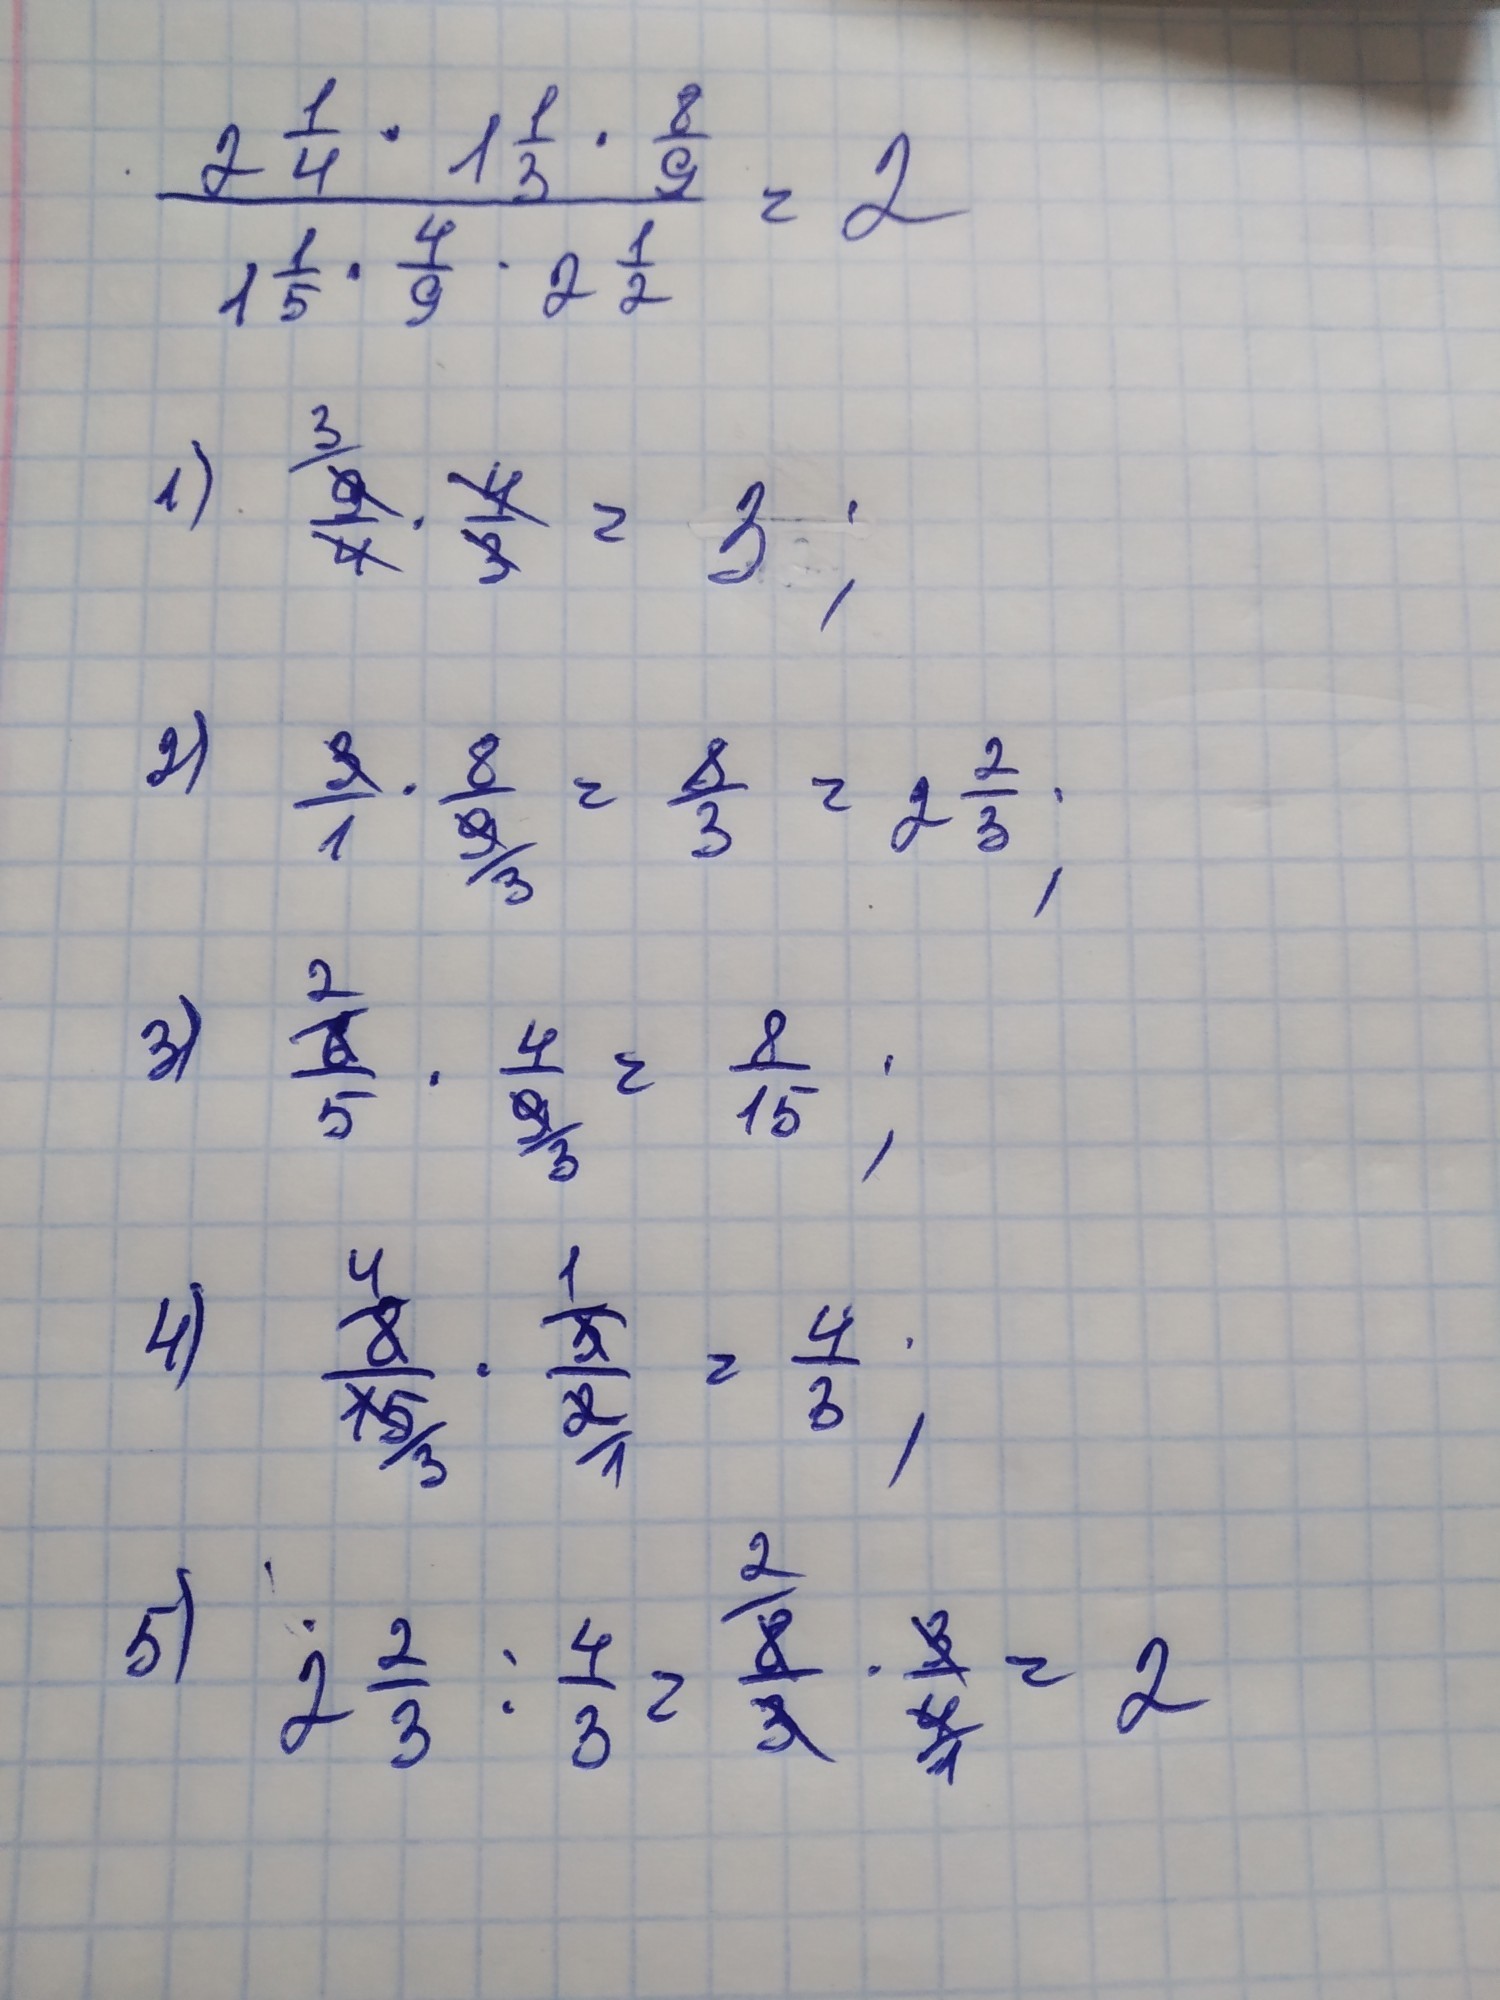 2 1/4 · 1 1/3 · 8/9 / 1 1/5 · 4/9 · 2 1/2 = 2
1) 9/4 · 4/3 = 3;
2) 3/1 · 8/9 = 8/3 = 2 2/3;
3) 6/5 · 4/9 = 8/15;
4) 8/15 · 5/2 = 4/3;
5) 2 2/3 : 4/3 = 8/3 · 3/4 = 2